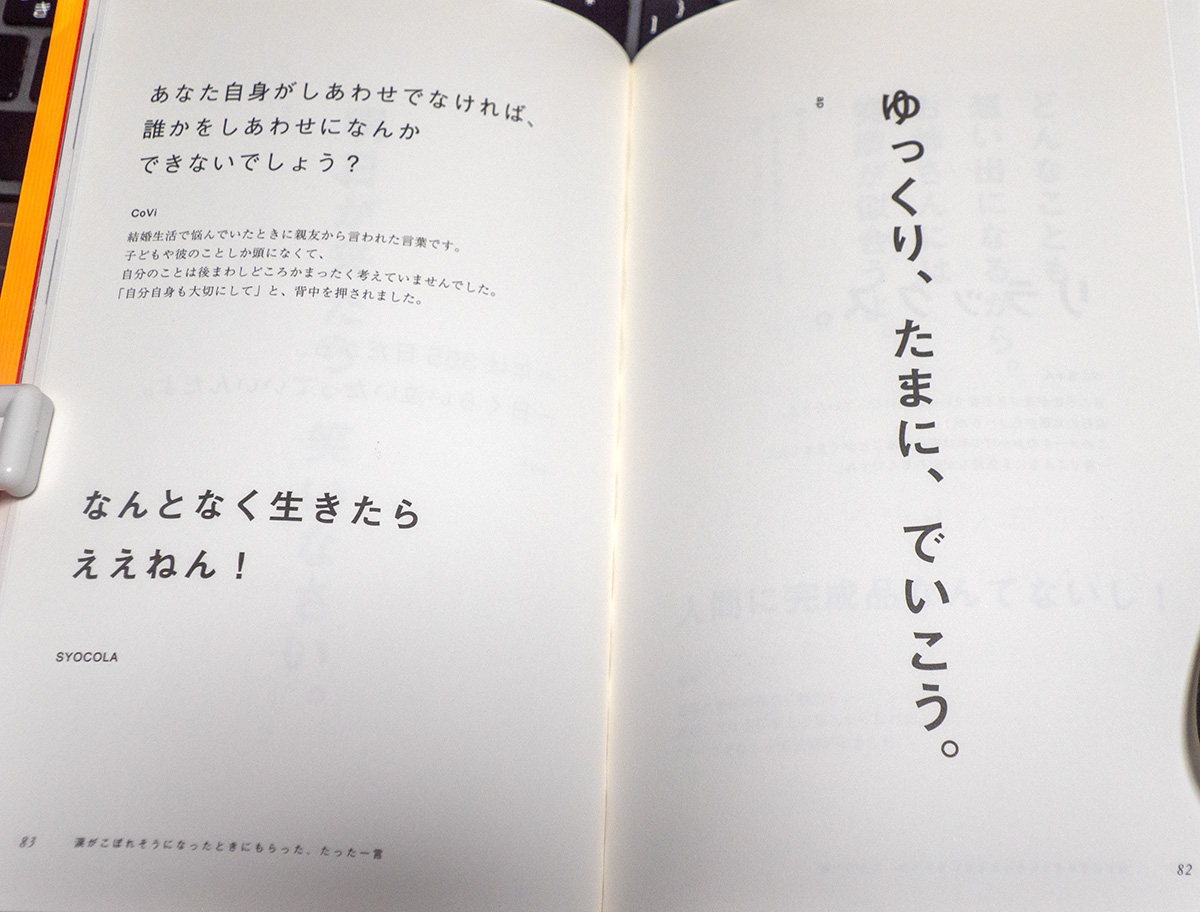 ゆっくり、たまに、でいこう。
ao
82
あなた自身がしあわせでなければ、
誰かをしあわせになんか
できないでしょう?
CoVi
結婚生活で悩んでいたときに親友から言われた言葉です。
子どもや彼のことしか頭になくて、
自分のことは後まわしどころかまったく考えていませんでした。
「自分自身も大切にして」と、背中を押されました。
なんとなく生きたら
ええねん!
SYOCOLA
83 涙がこぼれそうになったときにもらった、たった一言